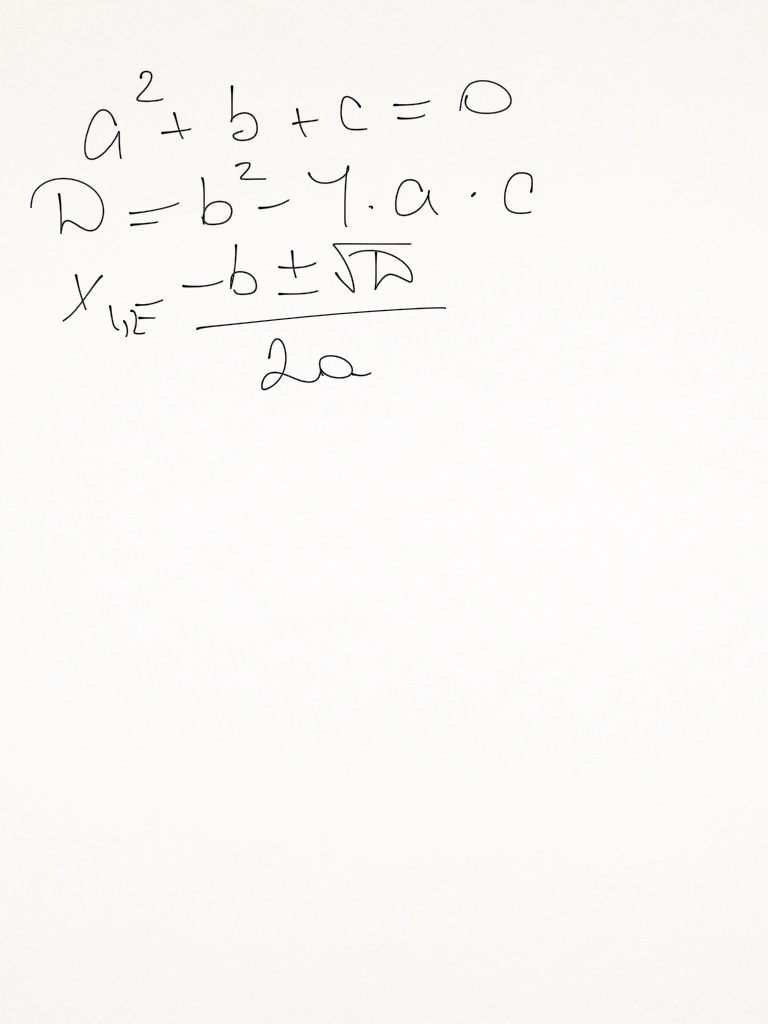 a² + b + c = 0
D = b² - 4 · a · c
x₁,₂ = (-b ± √D) / 2a